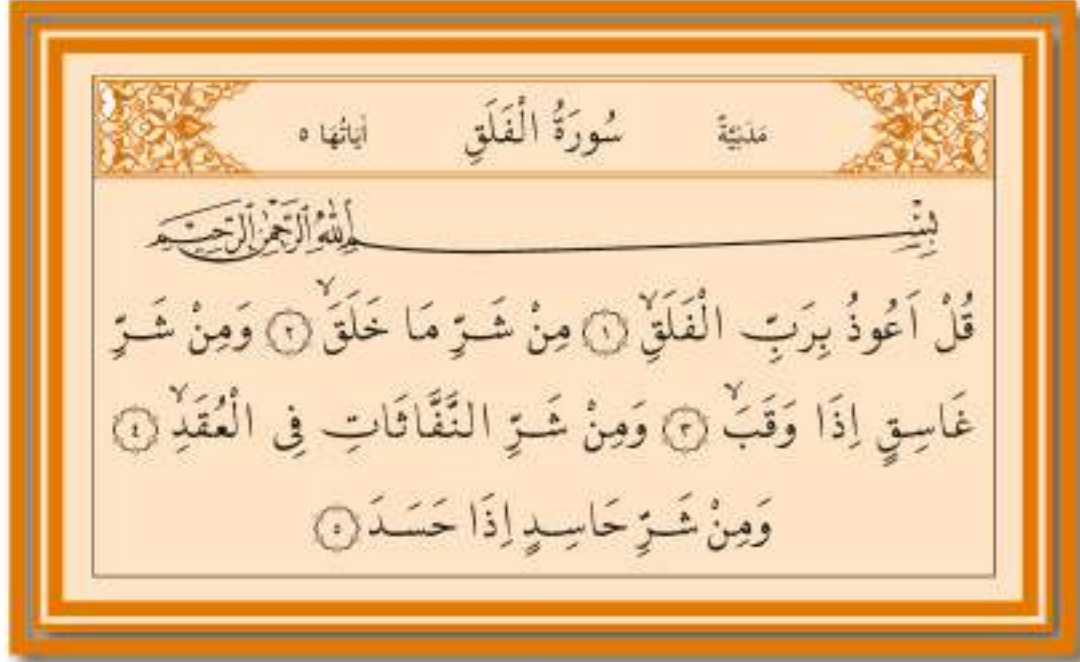 مَدَنِيَّةٌ سُورَةُ الْفَلَقِ اٰيَاتُهَا ٥
بِسْمِ اللّٰهِ الرَّحْمٰنِ الرَّحِيمِ
قُلْ اَعُوذُ بِرَبِّ الْفَلَقِۙ ﴿١﴾ مِنْ شَرِّ مَا خَلَقَۙ ﴿٢﴾ وَمِنْ شَرِّ
غَاسِقٍ اِذَا وَقَبَۙ ﴿٣﴾ وَمِنْ شَرِّ النَّفَّاثَاتِ فِي الْعُقَدِۙ ﴿٤﴾
وَمِنْ شَرِّ حَاسِدٍ اِذَا حَسَدَ ﴿٥﴾